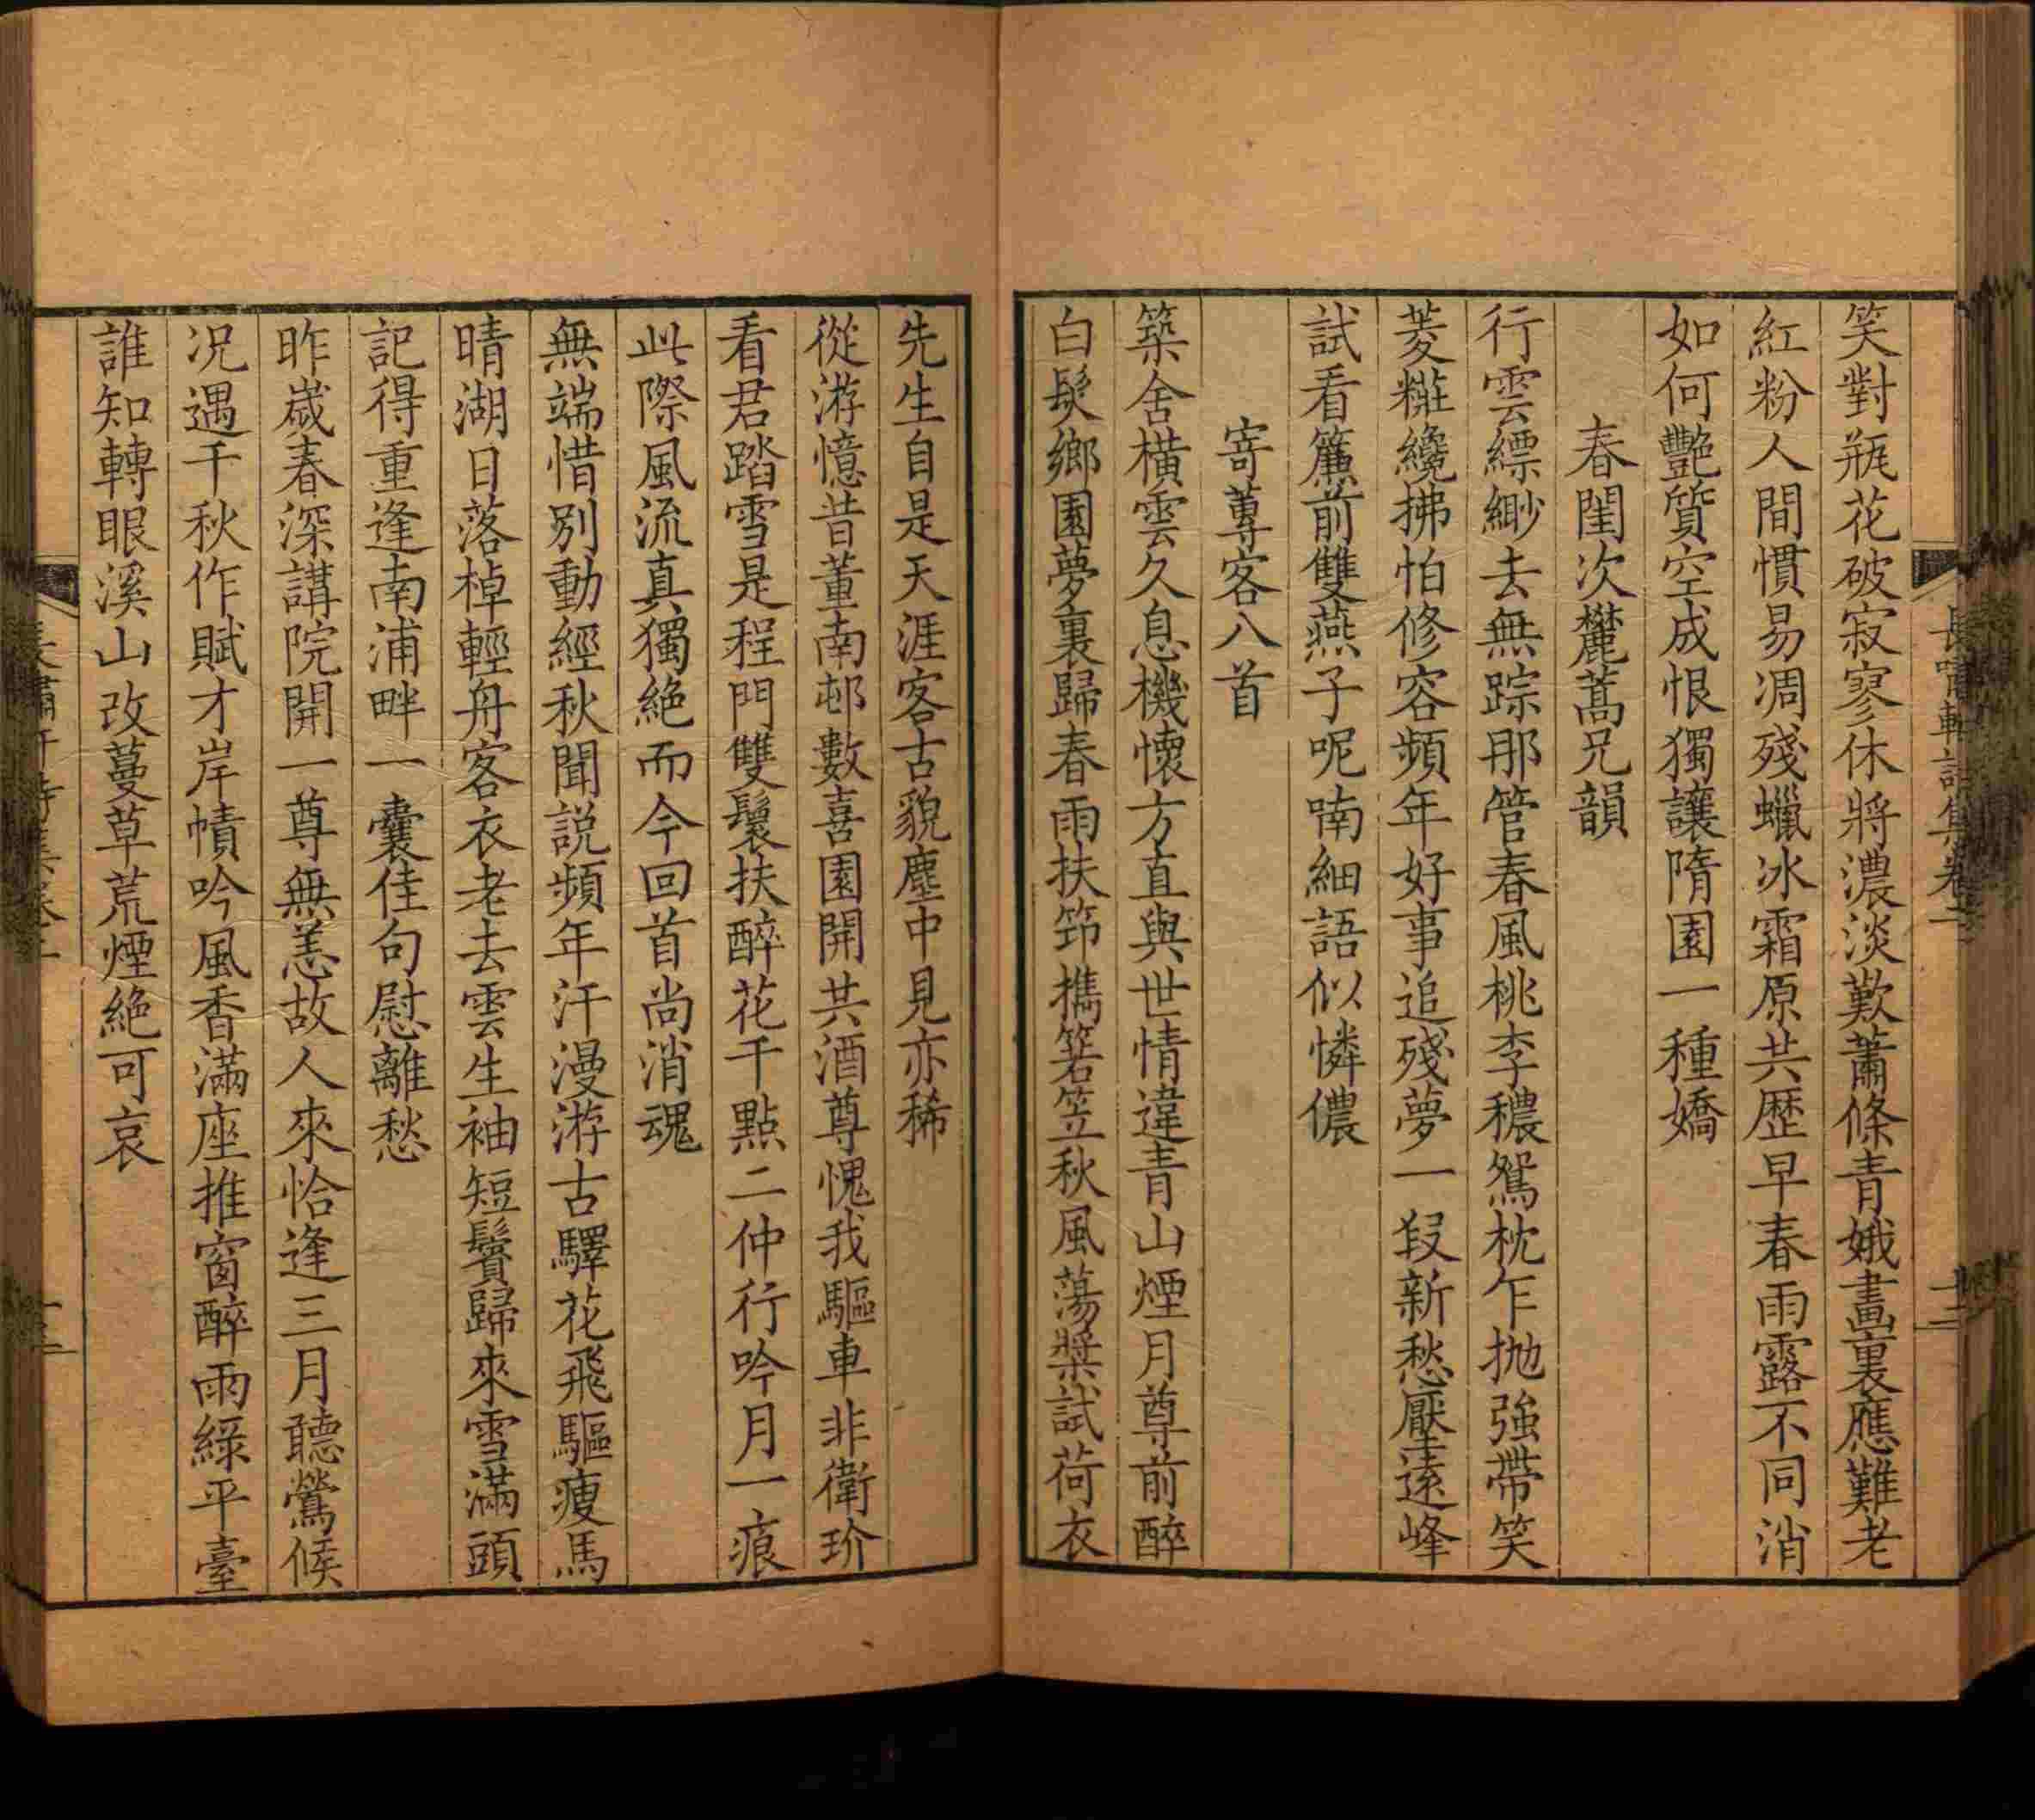 笑對瓶花破寂寥休將濃淡歎蕭條青娥畫裏應難老
紅粉人間慣易凋殘蠟冰霜原共歷早春雨露不同消
如何艷質空成恨獨讓隋園一種嬌
春閨次麓蒿兄韻
行雲縹緲去無踪那管春風桃李穠鴛枕乍拋強帶笑
菱糚纔拂怕修容頻年好事追殘夢一段新愁壓遠峰
試看簾前雙燕子呢喃細語似憐儂
寄蓴客八首
築舍橫雲久息機懷方直與世情違青山煙月尊前醉
白髮鄉園夢裏歸春雨扶筇攜箬笠秋風蕩槳試荷衣
先生自是天涯客古貌塵中見亦稀
從游憶昔董南邨數喜園開共酒尊愧我驅車非衛玠
看君踏雪是程門雙鬟扶醉花千點二仲行吟月一痕
此際風流真獨絕而今回首尚消魂
無端惜別動經秋聞説頻年汗漫游古驛花飛驅瘦馬
晴湖日落棹輕舟客衣老去雲生袖短鬢歸來雪滿頭
記得重逢南浦畔一囊佳句慰離愁
昨歲春深講院開一尊無恙故人來恰逢三月聽鶯候
况遇千秋作賦才岸幘吟風香滿座推窗醉雨綠平臺
誰知轉眼溪山改蔓草荒煙絕可哀